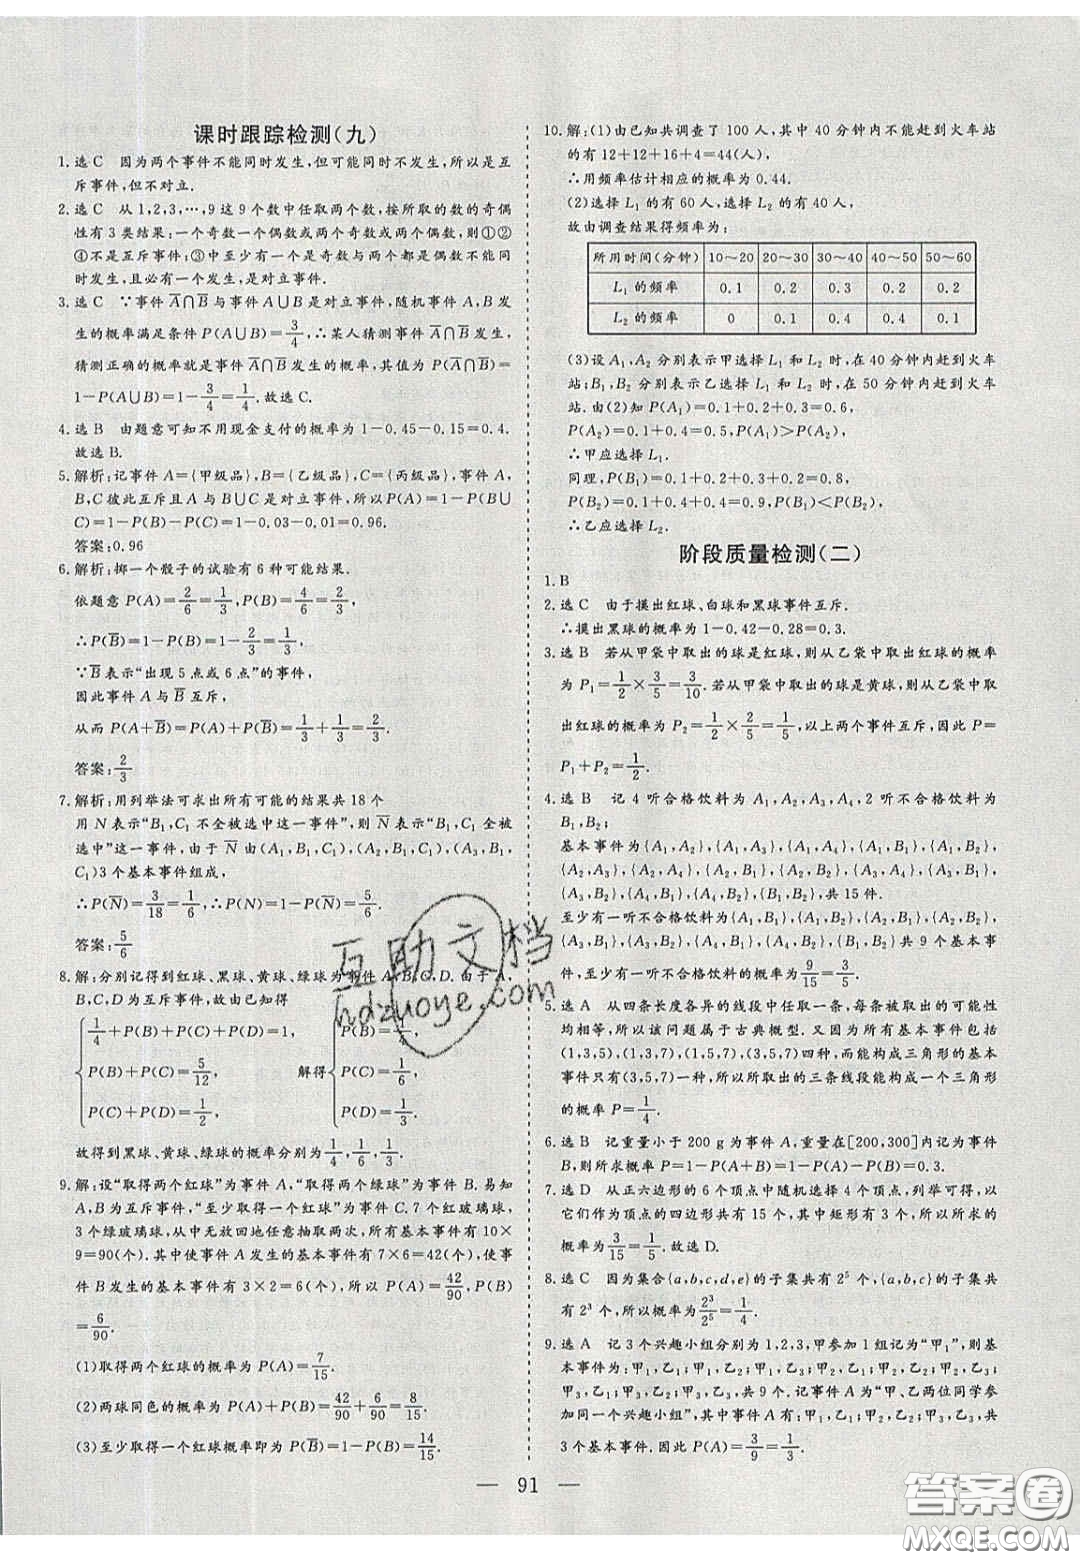 课时跟踪检测(九)
1.选C 因为两个事件不能同时发生,但可能同时不发生,所以是互
斥事件,但不对立.
2.选C 从1,2,3,…,9这9个数中任取两个数,按所取的数的奇偶
性有3类结果:一个奇数一个偶数或两个奇数或两个偶数,则①②
④不是互斥事件;③中至少有一个是奇数与两个都是偶数不能同
时发生,且必有一个发生,是对立事件.
3.选C ∵事件A̅∩B̅与事件A∪B是对立事件,随机事件A,B发
生的概率满足条件P(A∪B)=3/4,∴某人猜测事件A̅∩B̅发生,
猜测正确的概率就是事件A̅∩B̅发生的概率,其值为P(A̅∩B̅)=
1-P(A∪B)=1-3/4=1/4.故选C.
4.选B 由题意可知不用现金支付的概率为1-0.45-0.15=0.4.
故选B.
5.解析:记事件A={甲级品},B={乙级品},C={丙级品},事件A,
B,C彼此互斥且A与B∪C是对立事件,所以P(A)=1-P(B∪
C)=1-P(B)-P(C)=1-0.03-0.01=0.96.
答案:0.96
6.解析:掷一个骰子的试验有6种可能结果.
依题意P(A)=2/6=1/3,P(B)=4/6=2/3,
∴P(B̅)=1-P(B)=1-2/3=1/3,
∵B̅表示“出现5点或6点”的事件,
因此事件A与B̅互斥,
从而P(A+B̅)=P(A)+P(B̅)=1/3+1/3=2/3.
答案:2/3
7.解析:用列举法可求出所有可能的结果共18个
用N表示“B₁,C₁不全被选中这一事件”,则N̅表示“B₁,C₁全被
选中”这一事件,由于N̅由(A₁,B₁,C₁),(A₂,B₁,C₁),(A₃,B₁,
C₁)3个基本事件组成,
∴P(N̅)=3/18=1/6,∴P(N)=1-P(N̅)=1-1/6=5/6.
答案:5/6
8.解:分别记得到红球、黑球、黄球、绿球为事件A,B,C,D.由于A,
B,C,D为互斥事件,故由已知得
1/4+P(B)+P(C)+P(D)=1,
P(B)+P(C)=5/12,
P(C)+P(D)=1/2,
解得
P(B)=1/4,
P(C)=1/6,
P(D)=1/3.
故得到黑球、黄球、绿球的概率分别为1/4,1/6,1/3.
9.解:设“取得两个红球”为事件A,“取得两个绿球”为事件B.易知
A,B为互斥事件,记“至少取得一个红球”为事件C.7个红玻璃球,
3个绿玻璃球,从中无放回地任意抽取两次,所有基本事件有10×
9=90(个).其中使事件A发生的基本事件有7×6=42(个),使事
件B发生的基本事件有3×2=6(个),所以P(A)=42/90,P(B)
=6/90.
(1)取得两个红球的概率为P(A)=7/15.
(2)两球同色的概率为P(A)+P(B)=42/90+6/90=8/15.
(3)至少取得一个红球概率即为P(B̅)=1-P(B)=14/15.
10.解:(1)由已知共调查了100人,其中40分钟内不能赶到火车站
的有12+12+16+4=44(人),
∴用频率估计相应的概率为0.44.
(2)选择L₁的有60人,选择L₂的有40人,
故由调查结果得频率为:
所用时间(分钟) 10～20 20～30 30～40 40～50 50～60
L₁的频率 0.1 0.2 0.3 0.2 0.2
L₂的频率 0 0.1 0.4 0.4 0.1
(3)设A₁,A₂分别表示甲选择L₁和L₂时,在40分钟内赶到火车
站;B₁,B₂分别表示乙选择L₁和L₂时,在50分钟内赶到火车
站.由(2)知P(A₁)=0.1+0.2+0.3=0.6,
P(A₂)=0.1+0.4=0.5,P(A₁)>P(A₂),
∴甲应选择L₁.
同理,P(B₁)=0.1+0.2+0.3+0.2=0.8,
P(B₂)=0.1+0.4+0.4=0.9,P(B₁)<P(B₂),
∴乙应选择L₂.
阶段质量检测(二)
1.B
2.选C 由于摸出红球、白球和黑球事件互斥.
∴摸出黑球的概率为1-0.42-0.28=0.3.
3.选B 若从甲袋中取出的球是红球,则从乙袋中取出红球的概率
为P₁=1/2×3/5=3/10.若从甲袋中取出的球是黄球,则从乙袋中取
出红球的概率为P₂=1/2×2/5=1/5,以上两个事件互斥,因此P=
P₁+P₂=1/2.
4.选B 记4听合格饮料为A₁,A₂,A₃,A₄,2听不合格饮料为
B₁,B₂;
基本事件为{A₁,A₂},{A₁,A₃},{A₁,A₄},{A₁,B₁},{A₁,B₂},
{A₂,A₃},{A₂,A₄},{A₂,B₁},{A₂,B₂},{A₃,A₄},{A₃,B₁},
{A₃,B₂},{A₄,B₁},{A₄,B₂},{B₁,B₂},共15件.
至少有一听不合格饮料为{A₁,B₁},{A₁,B₂},{A₂,B₁},{A₂,B₂},
{A₃,B₁},{A₃,B₂},{A₄,B₁},{A₄,B₂},{B₁,B₂}共9个基本事
件,至少有一听不合格饮料的概率为9/15=3/5.
5.选A 从四条长度各异的线段中任取一条,每条被取出的可能性
均相等,所以该问题属于古典概型.又因为所有基本事件包括
(1,3,5),(1,3,7),(1,5,7),(3,5,7)四种,而能构成三角形的基本
事件只有(3,5,7)一种,所以所取出的三条线段能构成一个三角形
的概率P=1/4.
6.选B 记重量小于200 g为事件A,重量在[200,300]内记为事件
B,则所求概率P=1-P(A+B)=1-P(A)-P(B)=0.3.
7.选D 从正六边形的6个顶点中随机选择4个顶点,列举可得,以
它们作为顶点的四边形共有15个,其中矩形有3个,所以所求的
概率为3/15=1/5.故选D.
8.选C 因为集合{a,b,c,d,e}的子集共有2⁵个,{a,b,c}的子集共
有2³个,所以概率为2³/2⁵=1/4.
9.选A 记3个兴趣小组分别为1,2,3,甲参加1组记为“甲₁”,则基
本事件为:甲₁,乙₁;甲₁,乙₂;甲₁,乙₃;甲₂,乙₁;甲₂,乙₂;甲₂,乙₃;
甲₃,乙₁;甲₃,乙₂;甲₃,乙₃,共9个.记事件A为“甲、乙两位同学参
加同一个兴趣小组”,其中事件A有:甲₁,乙₁;甲₂,乙₂;甲₃,乙₃,共
3个基本事件.因此P(A)=3/9=1/3.
— 91 —
互助文档
hdzuoye.com
答案圈
MXQE.COM